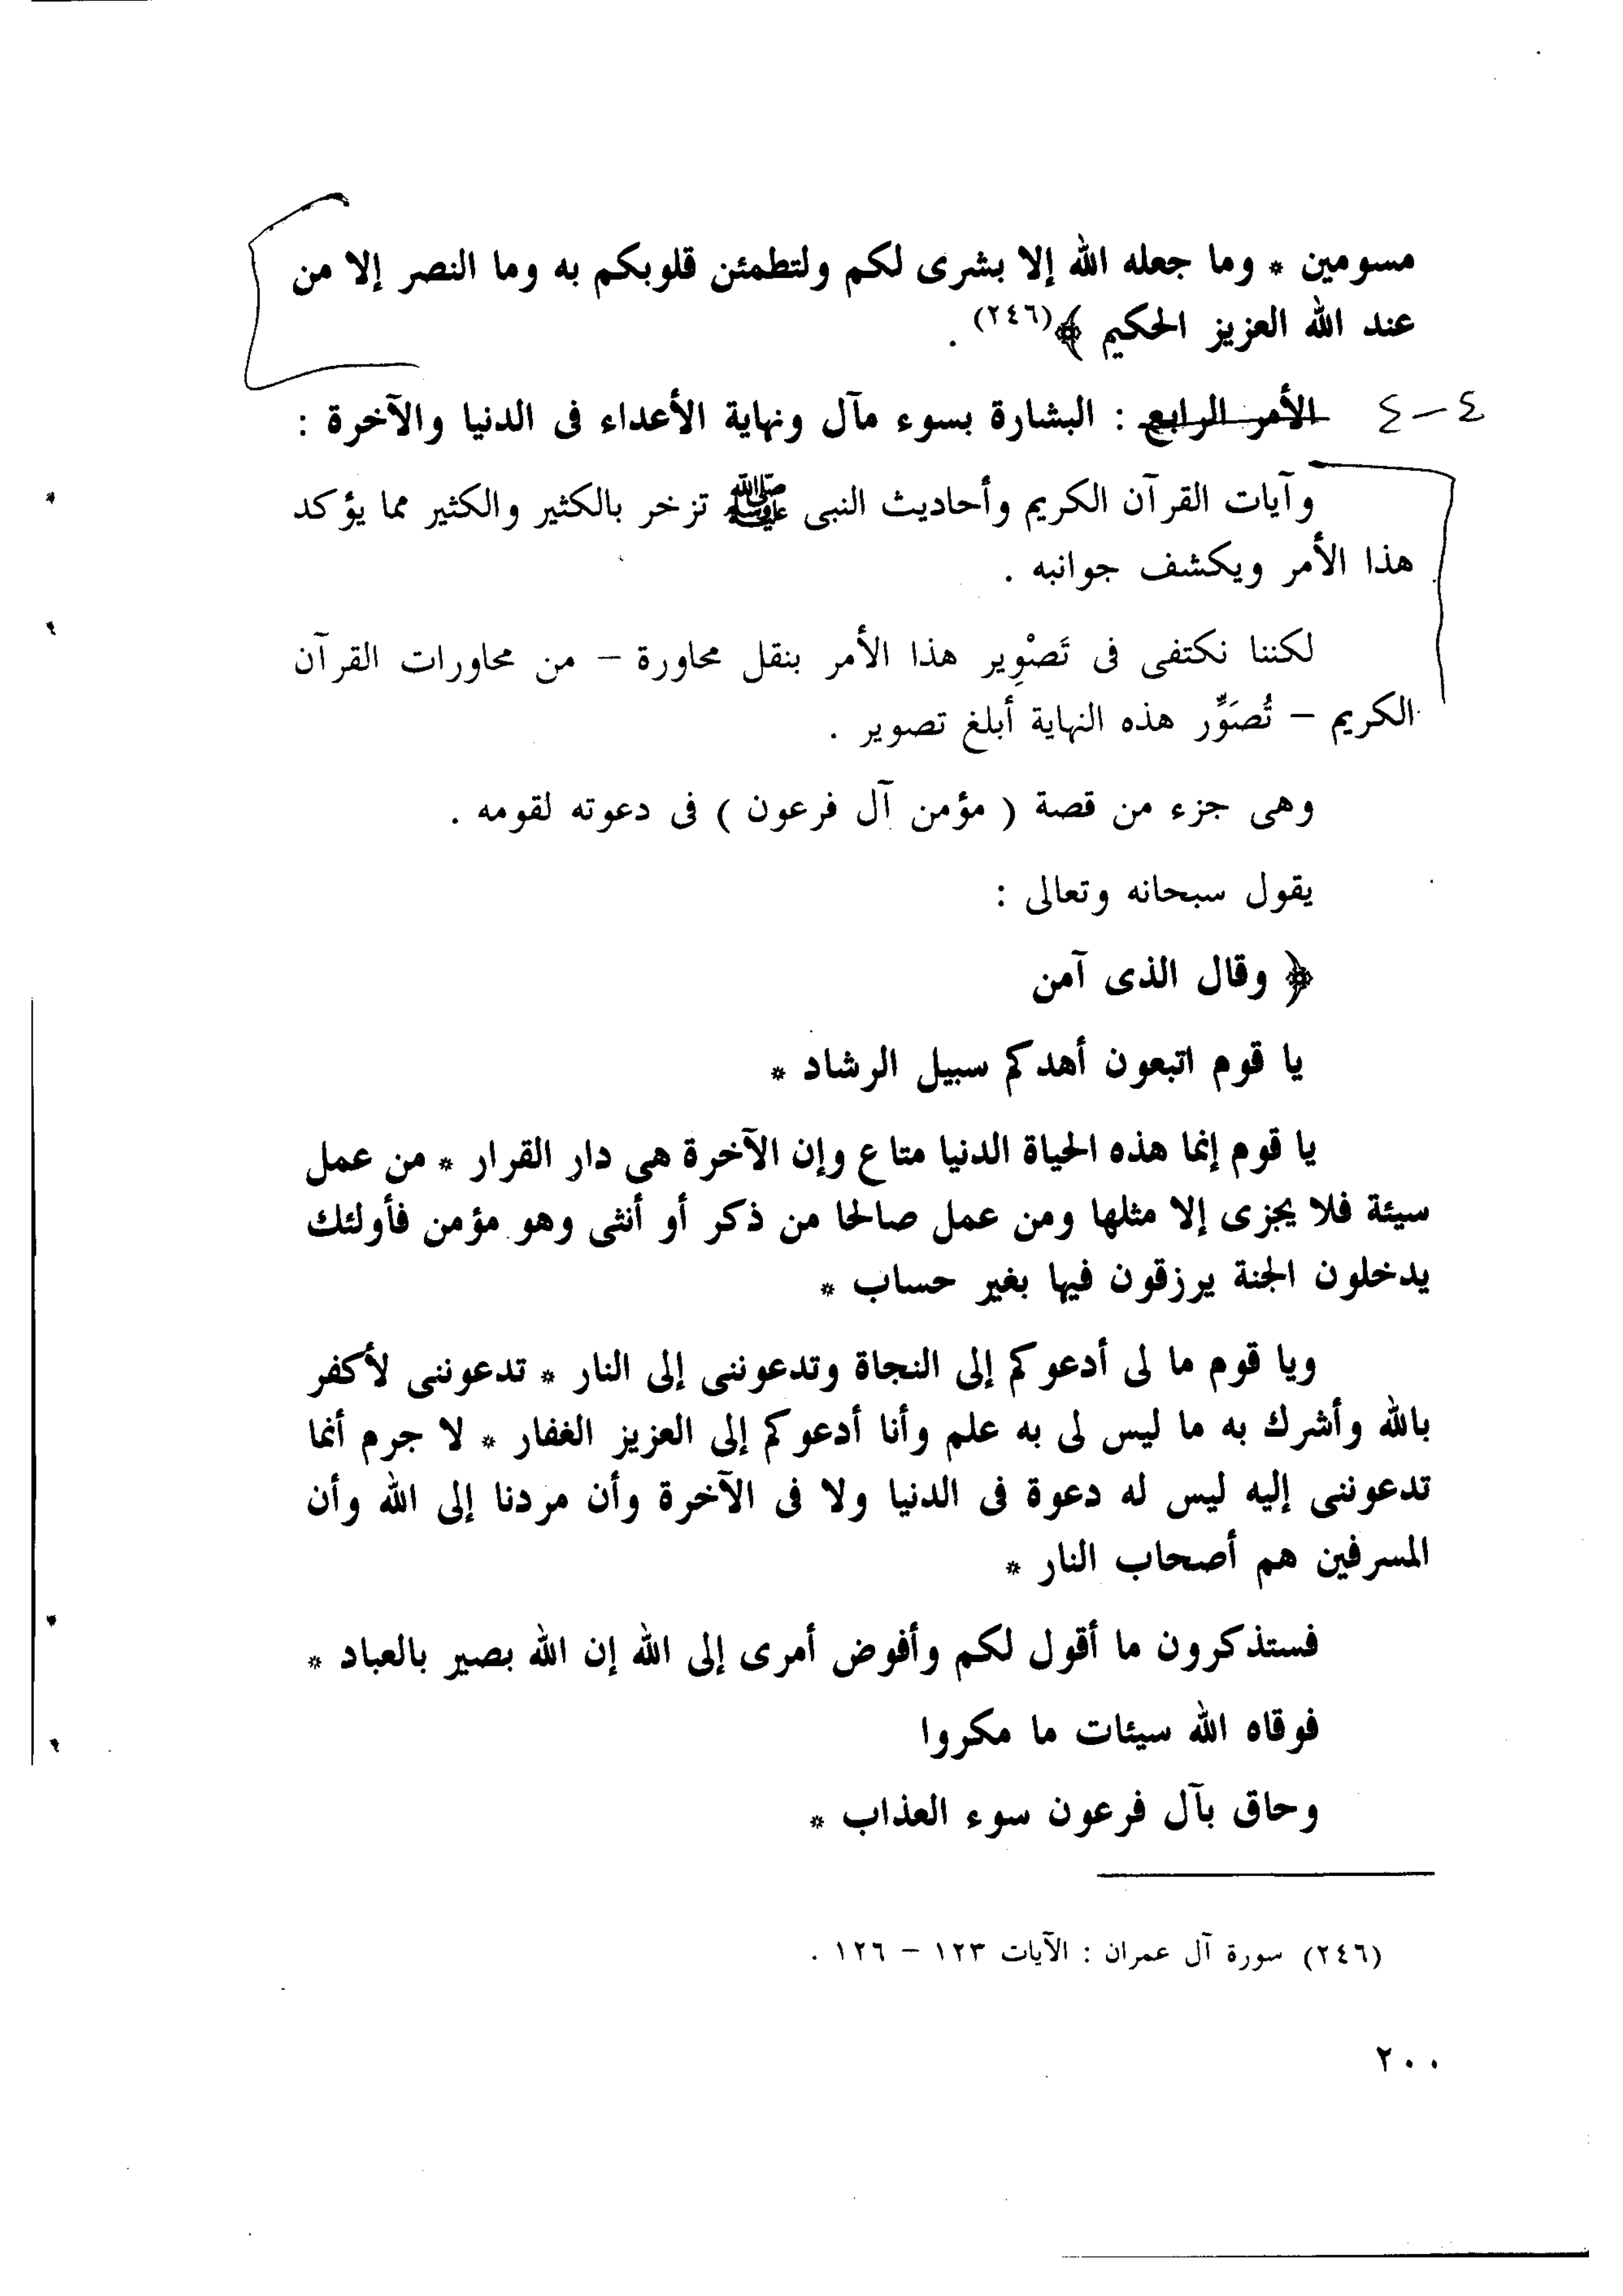 مسومين * وما جعله الله إلا بشرى لكم ولتطمئن قلوبكم به وما النصر إلا من
عند الله العزيز الحكيم ﴾(٢٤٦) .
٤-٤ الأمر الرابع : البشارة بسوء مآل ونهاية الأعداء فى الدنيا والآخرة :
وآيات القرآن الكريم وأحاديث النبى ﷺ تزخر بالكثير والكثير مما يؤكد
هذا الأمر ويكشف جوانبه .
لكننا نكتفى فى تَصْوِير هذا الأمر بنقل محاورة – من محاورات القرآن
الكريم – تُصَوِّر هذه النهاية أبلغ تصوير .
وهى جزء من قصة ( مؤمن آل فرعون ) فى دعوته لقومه .
يقول سبحانه وتعالى :
﴿ وقال الذى آمن
يا قوم اتبعون أهدكم سبيل الرشاد *
يا قوم إنما هذه الحياة الدنيا متاع وإن الآخرة هى دار القرار * من عمل
سيئة فلا يجزى إلا مثلها ومن عمل صالحا من ذكر أو أنثى وهو مؤمن فأولئك
يدخلون الجنة يرزقون فيها بغير حساب *
ويا قوم ما لى أدعوكم إلى النجاة وتدعوننى إلى النار * تدعوننى لأكفر
بالله وأشرك به ما ليس لى به علم وأنا أدعوكم إلى العزيز الغفار * لا جرم أنما
تدعوننى إليه ليس له دعوة فى الدنيا ولا فى الآخرة وأن مردنا إلى الله وأن
المسرفين هم أصحاب النار *
فستذكرون ما أقول لكم وأفوض أمرى إلى الله إن الله بصير بالعباد *
فوقاه الله سيئات ما مكروا
وحاق بآل فرعون سوء العذاب *
(٢٤٦) سورة آل عمران : الآيات ١٢٣ – ١٢٦ .
٢٠٠